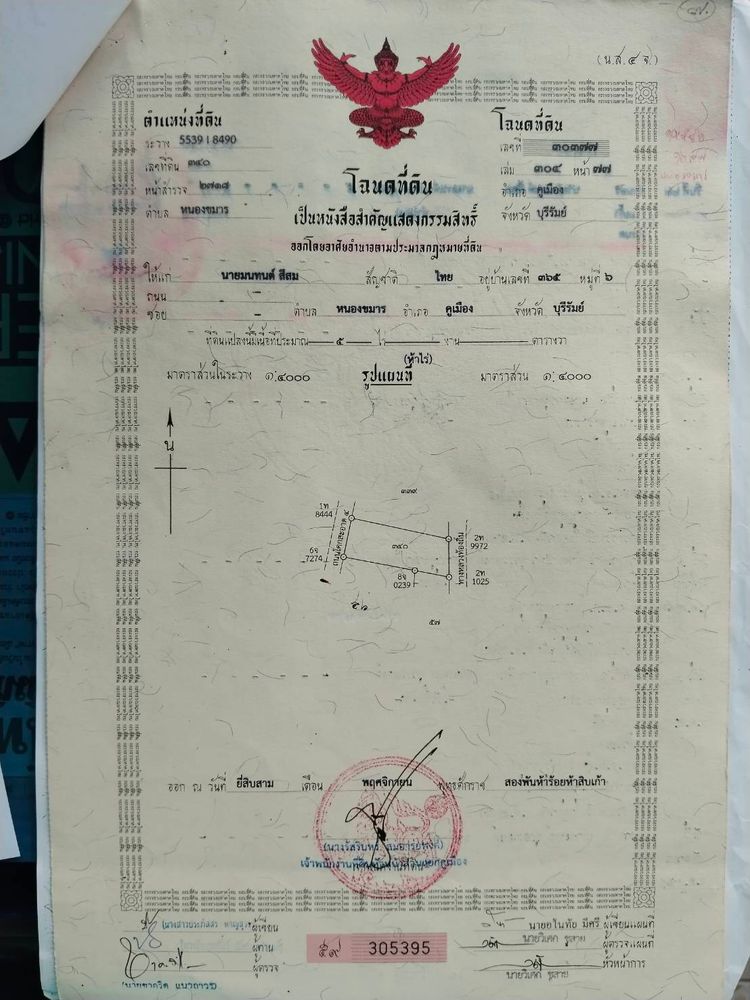 ๘๗.
(น.ส.๔ จ.)
ตำแหน่งที่ดิน
ระวาง 5539 I 8490
เลขที่ดิน ๓๔๐
หน้าสำรวจ ๒๗๑๘
ตำบล หนองขมาร
โฉนดที่ดิน
เลขที่ ๓๐๓๗๗
เล่ม ๓๐๔ หน้า ๗๗
อำเภอ คูเมือง
จังหวัด บุรีรัมย์
โฉนดที่ดิน
เป็นหนังสือสำคัญแสดงกรรมสิทธิ์
ออกโดยอาศัยอำนาจตามประมวลกฎหมายที่ดิน
ให้แก่ นายมนทนต์ สีสม สัญชาติ ไทย อยู่บ้านเลขที่ ๓๖๕ หมู่ที่ ๖
ถนน –
ซอย – ตำบล หนองขมาร อำเภอ คูเมือง จังหวัด บุรีรัมย์
ที่ดินแปลงนี้มีเนื้อที่ประมาณ ๕ ไร่ งาน ตารางวา
(ห้าไร่)
มาตราส่วนในระวาง ๑:๔๐๐๐ รูปแผนที่ มาตราส่วน ๑:๔๐๐๐
น
๓๓๙
1ท
8444
๓๔๐
2ท
9972
ทางหลวงท้องถิ่น
6จ
7274
8จ
0239
2ท
1025
๕๗
ออก ณ วันที่ ยี่สิบสาม เดือน พฤศจิกายน พุทธศักราช สองพันห้าร้อยห้าสิบเก้า
ผู้เขียน
ผู้ทาน
ผู้ตรวจ
๕๙ 305395
นายอโนทัย มีศรี ผู้เขียนแผนที่
นายวิเศก ชูสาย ผู้ตรวจแผนที่
หัวหน้าการ
นายวิเศก ชูสาย